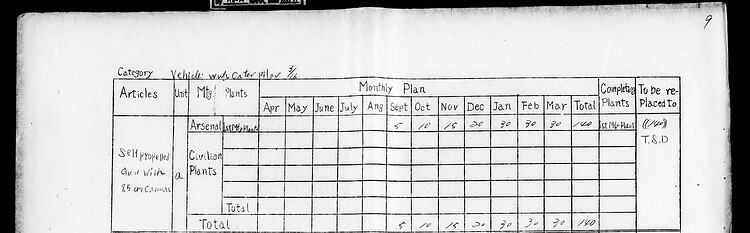 9
Category Vehicle with Caterpilar 3/12
Articles Unit Mfg Plants Monthly Plan Completing Plants To be re-Placed to
Apr May June July Aug Sept Oct Nov Dec Jan Feb Mar Total
Self propelled
with
a
Arsenal 1st Mfg Plants 5 10 15 20 30 30 30 140 1st Mfg Plant ((140))
T.S.D
Civilian
Plants
Total
Total 5 10 15 20 30 30 30 140